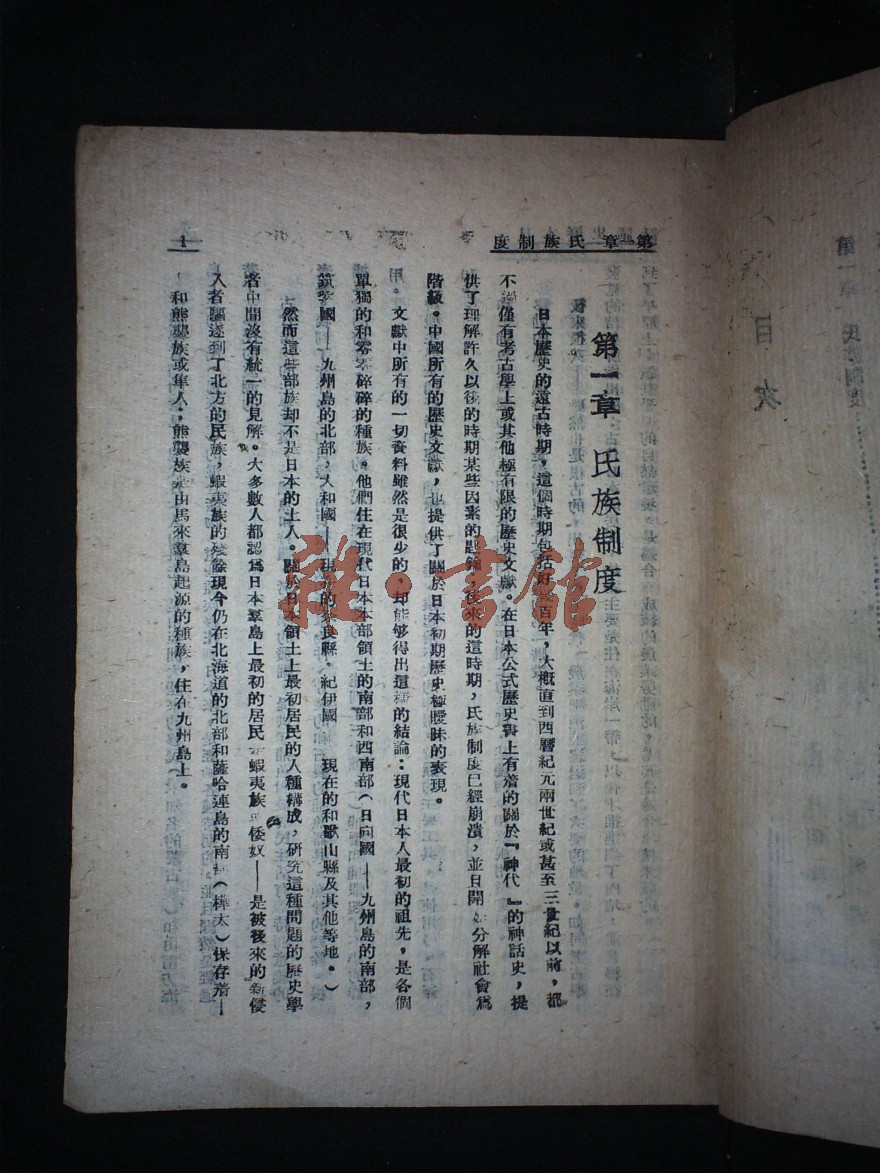 第一章 氏族制度
1
第一章 氏族制度
日本歷史的遠古時期，這個時期包括好 百年，大概直到西曆紀元兩世紀或甚至三世紀以前，都
不 僅有考古學上或其他極有限的歷史文獻。在日本公式歷史書上有着的關於『神代』的神話史，提
供了理解許久以後的時期某些因素的 後來的這時期，氏族制度已經崩潰，並且開 分解社會爲
階級。中國所有的歷史文獻，也提供了關於日本初期歷史極曖昧的表現。
文獻中所有的一切資料雖然是很少的，却能够得出這 的結論：現代日本人最初的祖先，是各個
單獨的和零零碎碎的種族。他們住在現代日本本部領土的南部和西南部（日向國——九州島的南部，
筑紫國——九州島的北部，大和國——現在的奈良縣，紀伊國 現在的和歌山縣及其他等地。）
然而這些部族却不是日本的土人。關於日本領土上最初居民的人種構成，研究這種問題的歷史學
者中間沒有統一的見解。大多數人都認爲日本羣島上最初的居民 蝦夷族 倭奴——是被後來的 侵
入者驅逐到了北方的民族，蝦夷族的殘餘現今仍在北海道的北部和薩哈連島的南 （樺太）保存着—
和熊襲族或隼人：熊襲族是由馬來羣島起源的種族，住在九州島上。
目次
第一章 氏族制度
雜·書館